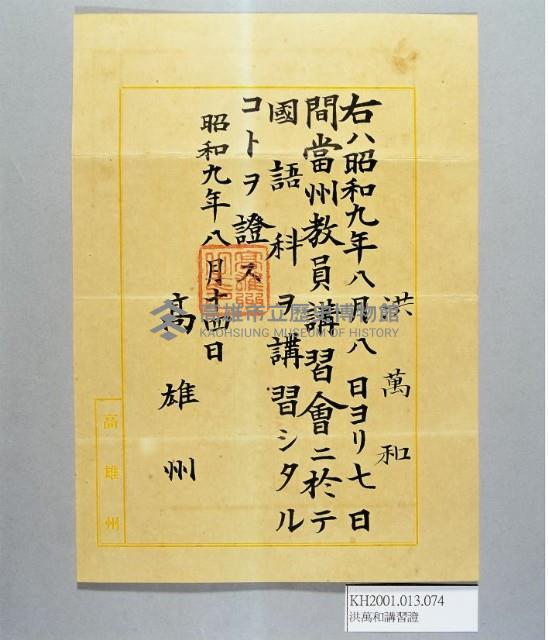 洪萬和
右ハ昭和九年八月八日ヨリ七日
間當州教員講習會ニ於テ
國語科ヲ講習シタル
コトヲ證ス
昭和九年八月十四日
高雄州
高雄州
高雄市立歷史博物館
KAOHSIUNG MUSEUM OF HISTORY
KH2001.013.074
洪萬和講習證